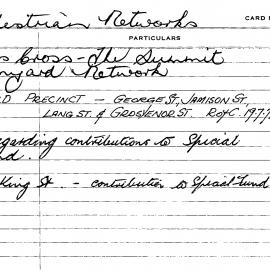 destrian Networks
CARD
PARTICULARS
s Cross - The Summit
nyard Network
D PRECINCT - GEORGE ST, JAMISON ST,
LANG ST. & GROSVENOR ST. RofC. 19.7.7
garding contributions to Special
nd.
King St. - contribution to Special Fund